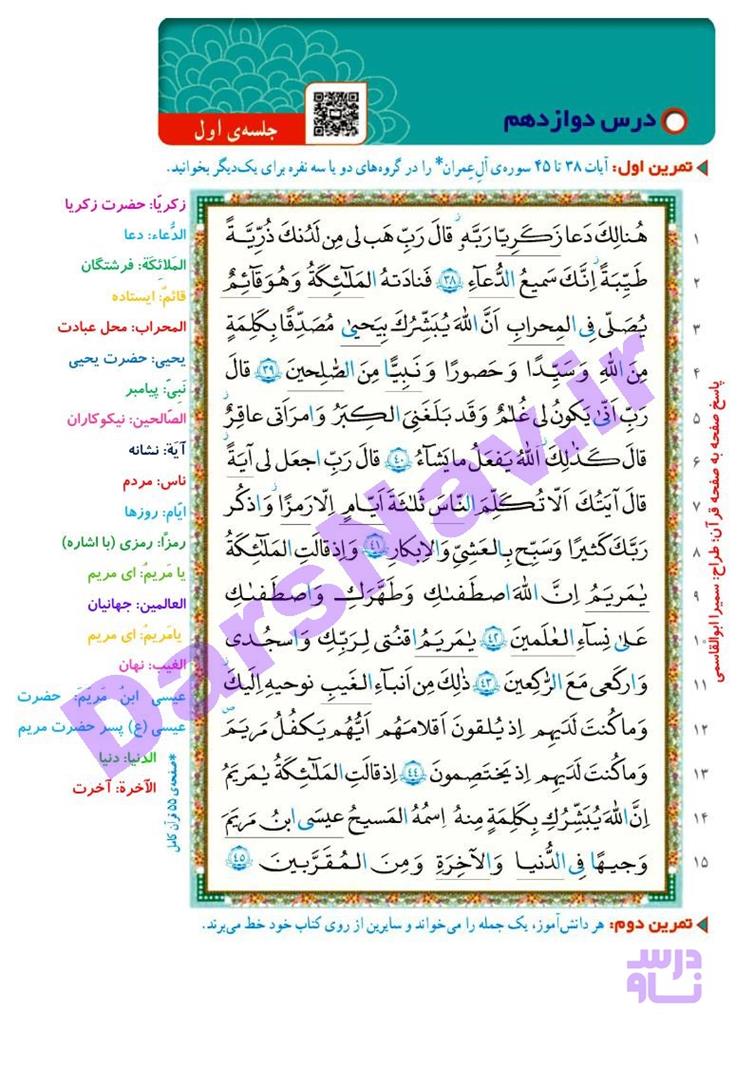 درس دوازدهم
جلسه‌ی اول
تمرین اول: آیات ۳۸ تا ۴۵ سوره‌ی آلِ‌عِمران* را در گروه‌های دو یا سه نفره برای یک‌دیگر بخوانید.
۱ هُنالِكَ دَعا زَكَرِيّا رَبَّهُ قالَ رَبِّ هَب لى مِن لَدُنكَ ذُرِّيَّةً
۲ طَيِّبَةً اِنَّكَ سَميعُ الدُّعآءِ ۳۸ فَنادَتهُ المَلٰٓئِكَةُ وَ هُوَ قآئِمٌ
۳ يُصَلّى فِى المِحرابِ اَنَّ اللّٰهَ يُبَشِّرُكَ بِيَحيىٰ مُصَدِّقًا بِكَلِمَةٍ
۴ مِنَ اللّٰهِ وَ سَيِّدًا وَ حَصورًا وَ نَبِيًّا مِنَ الصّٰلِحينَ ۳۹ قالَ
۵ رَبِّ اَنّىٰ يَكونُ لى غُلٰمٌ وَ قَد بَلَغَنِىَ الكِبَرُ وَ امرَاَتى عاقِرٌ
۶ قالَ كَذٰلِكَ اللّٰهُ يَفعَلُ ما يَشآءُ ۴۰ قالَ رَبِّ اجعَل لى آيَةً
۷ قالَ آيَتُكَ اَلّا تُكَلِّمَ النّاسَ ثَلٰثَةَ اَيّامٍ اِلّا رَمزًا وَ اذكُر
۸ رَبَّكَ كَثيرًا وَ سَبِّح بِالعَشِىِّ وَ الاِبكارِ ۴۱ وَ اِذ قالَتِ المَلٰٓئِكَةُ
۹ يٰمَريَمُ اِنَّ اللّٰهَ اصطَفىٰكِ وَ طَهَّرَكِ وَ اصطَفىٰكِ
۱۰ عَلىٰ نِسآءِ العٰلَمينَ ۴۲ يٰمَريَمُ اقنُتى لِرَبِّكِ وَ اسجُدى
۱۱ وَ اركَعى مَعَ الرّٰكِعينَ ۴۳ ذٰلِكَ مِن اَنبآءِ الغَيبِ نوحيهِ اِلَيكَ
۱۲ وَ ما كُنتَ لَدَيهِم اِذ يُلقونَ اَقلامَهُم اَيُّهُم يَكفُلُ مَريَمَ
۱۳ وَ ما كُنتَ لَدَيهِم اِذ يَختَصِمونَ ۴۴ اِذ قالَتِ المَلٰٓئِكَةُ يٰمَريَمُ
۱۴ اِنَّ اللّٰهَ يُبَشِّرُكِ بِكَلِمَةٍ مِنهُ اسمُهُ المَسيحُ عيسَى ابنُ مَريَمَ
۱۵ وَجيهًا فِى الدُّنيا وَ الآخِرَةِ وَ مِنَ المُقَرَّبينَ ۴۵
زکریّا: حضرت زکریا
الدُّعاء: دعا
المَلائِکَة: فرشتگان
قائمٌ: ایستاده
المحراب: محل عبادت
یحیی: حضرت یحیی
نَبِیّ: پیامبر
الصّالحین: نیکوکاران
آیَة: نشانه
ناس: مردم
ایّام: روزها
رمزًا: رمزی (با اشاره)
یا مَریمُ: ای مریم
العالمین: جهانیان
یامَریمُ: ای مریم
الغیب: نهان
عیسی ابنُ مَریَمَ: حضرت
عیسی (ع) پسر حضرت مریم
الدنیا: دنیا
الآخرة: آخرت
*صفحه‌ی ۵۵ قرآن کامل
پاسخ صفحه به صفحه قرآن: طراح: سمیرا ابوالقاسمی
تمرین دوم: هر دانش‌آموز، یک جمله را می‌خواند و سایرین از روی کتاب خود خط می‌برند.
DarsNav.ir
درس
ناو